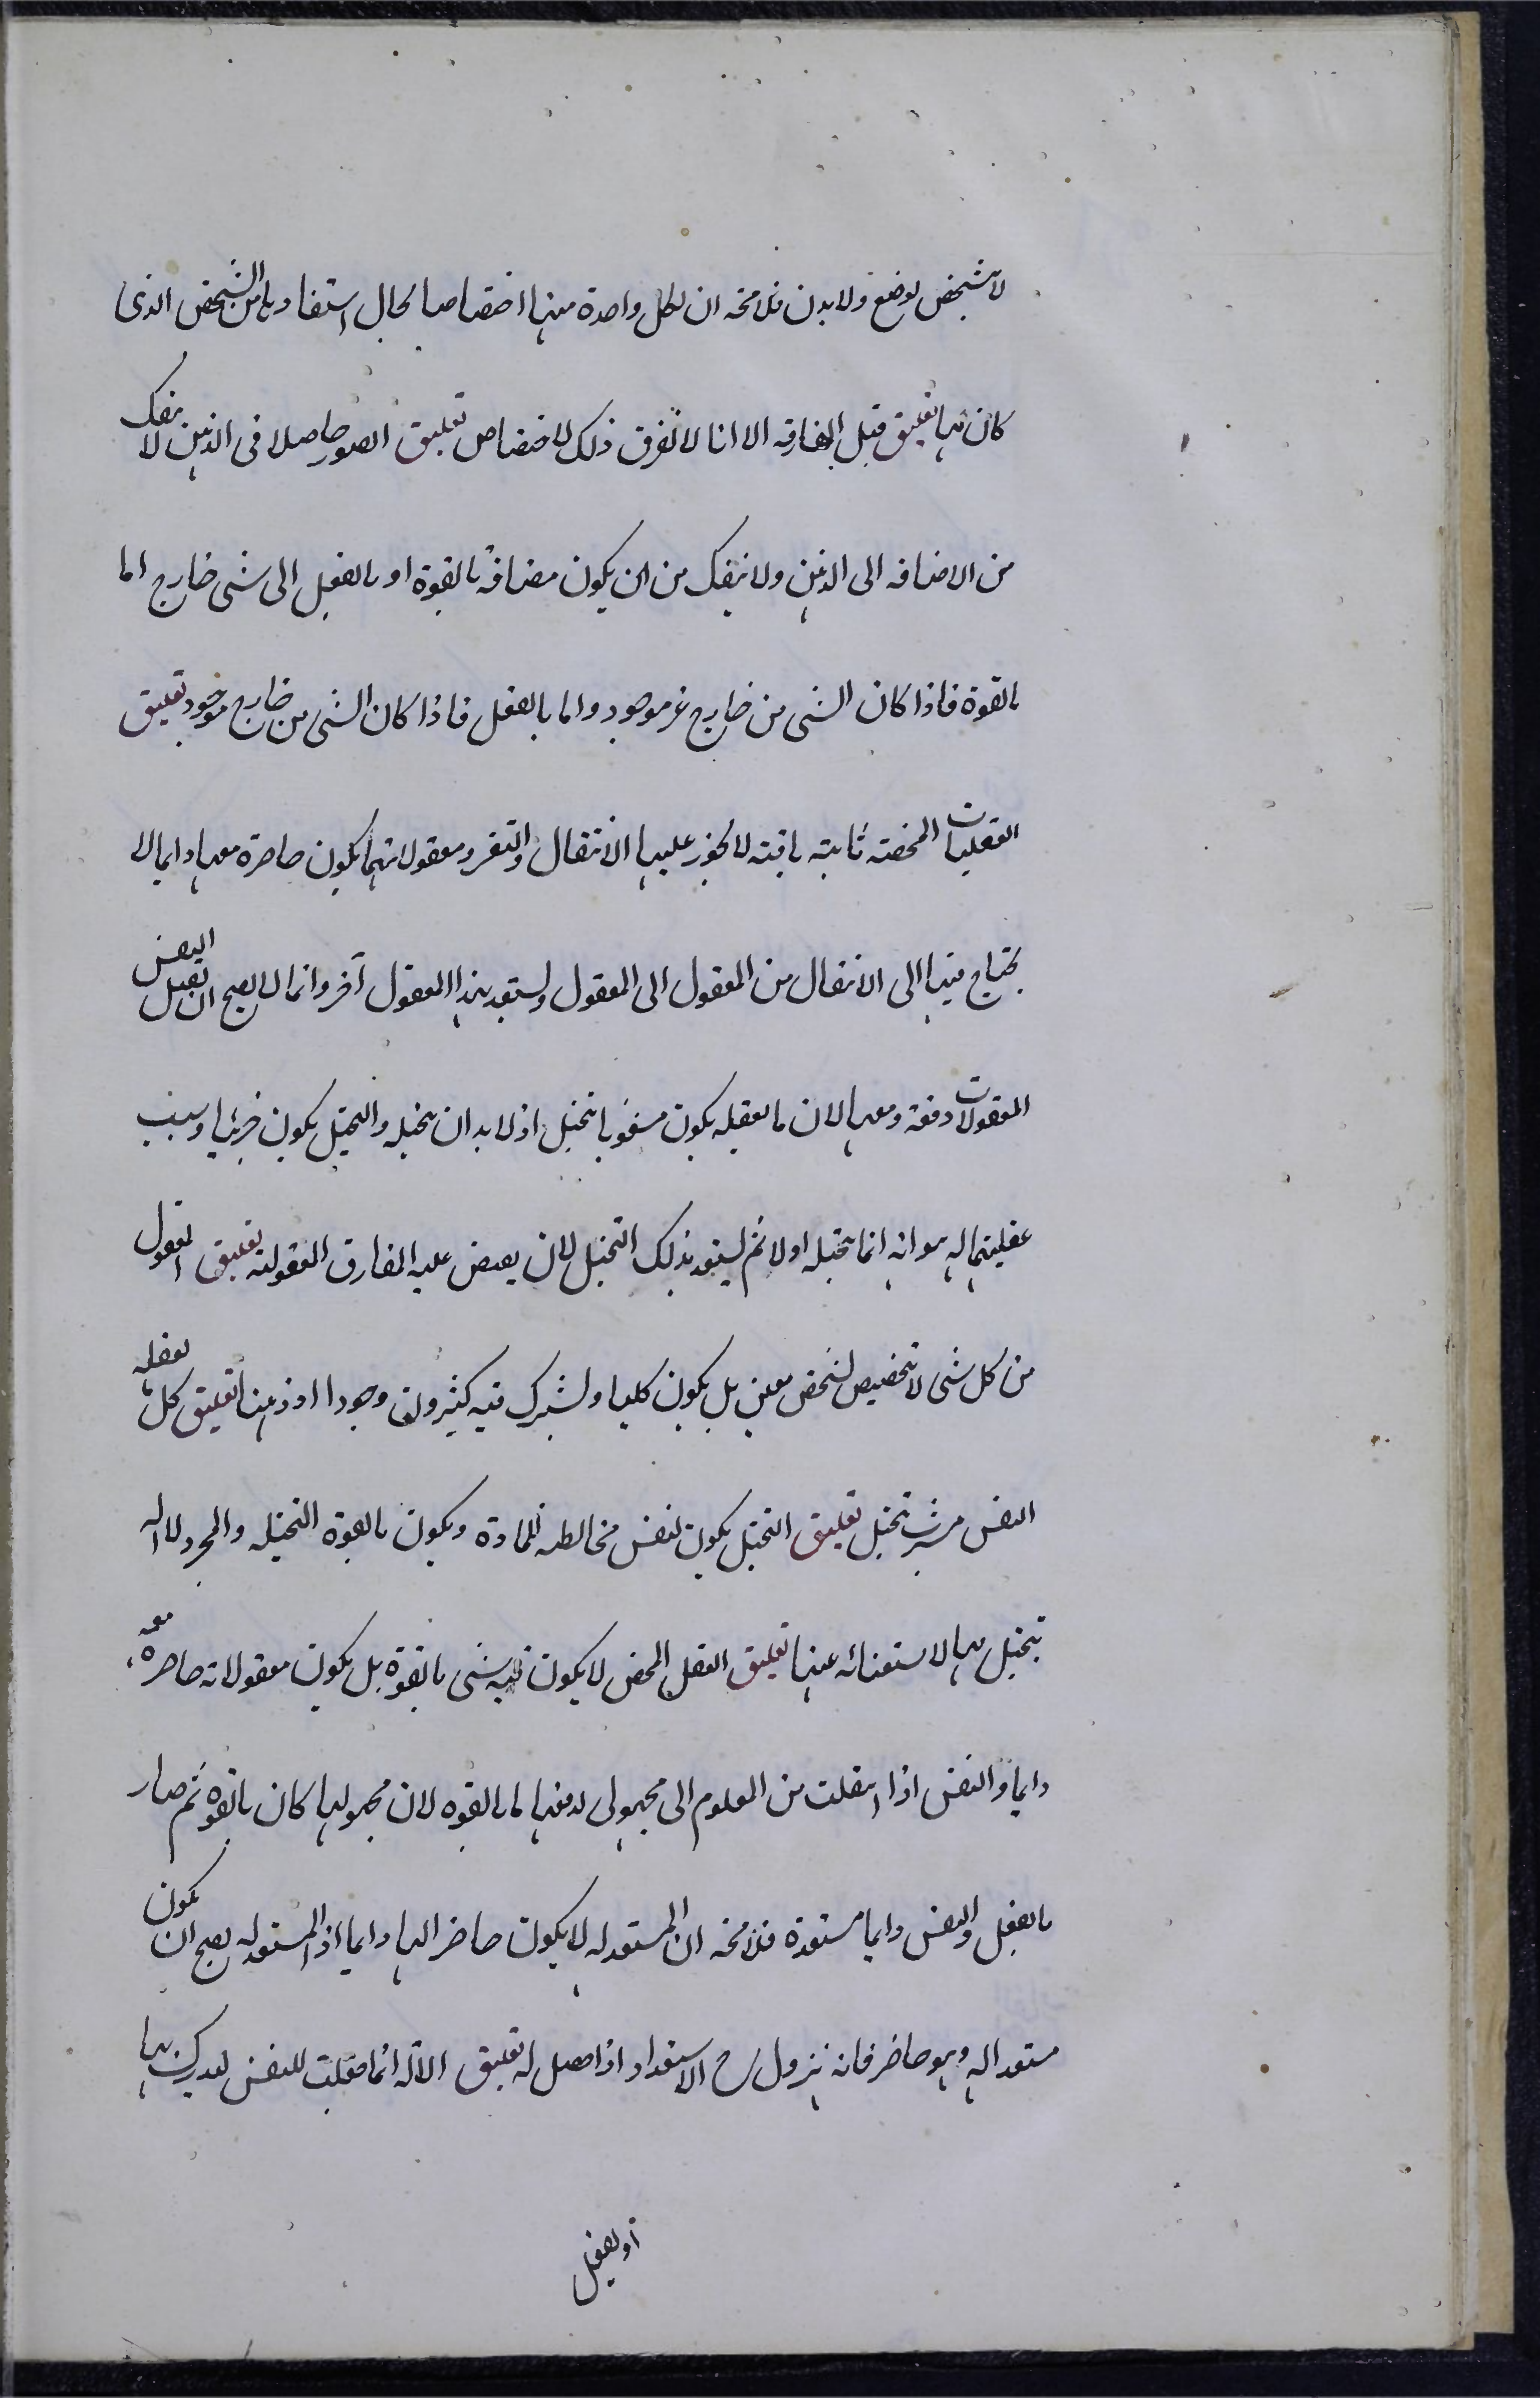 لا تشخص بوضع ولا بدن فلا محة ان لكل واحدة منها اختصاصا بحال استفادتها من الشخص الذى
كان بها تعليق قبل المفارقه الا انا لا نعرف ذلك الاختصاص تعليق الصور حاصلا فى الذهن لا ينفك
من الاضافه الى الذهن ولا ينفك من ان يكون مضافة بالقوة او بالفعل الى شى خارج اما
بالقوة فاذا كان الشى من خارج غير موجود واما بالفعل فاذا كان الشى من خارج موجود تعليق
العقليات المحضة ثابتة باقية لا يجوز عليها الانتقال والتغير ومعقولاتها يكون حاضرة معها دايما لا
يحتاج فيها الى الانتقال من المعقول الى المعقول وليستعد بهذا المعقول آخر وانما لا يصح ان يعقل النفس
المعقولات دفعة ومعها لان ما يعقله يكون مشوبا بتخيل اذ لا بد ان يتخيله والتخيل يكون جزئيا وسبب
عقليتها له هو انه انما يتخيله اولا ثم ليستعد بذلك التخيل لان يفيض عليه المفارق المعقولية تعليق المعقول
من كل شى لا تخصيص لشخص معين بل يكون كليا ويشترك فيه كثيرون وجودا او ذهنا تعليق كل ما تعقله
النفس مشوب بتخيل تعليق التخيل يكون لنفس مخالطة للمادة ويكون بالقوة التخيله والمجرد لا اله
يتخيل بها لاستغنائه عنها تعليق العقل المحض لا يكون فيه شى بالقوة بل يكون معقولاته حاضرة معه
دايما والنفس اذا انتقلت من المعلوم الى مجهول لم ففيها ما بالقوه لان مجهولها كان بالقوه ثم صار
بالفعل والنفس دايما مستعدة فلا محة ان المستعد له لا يكون حاضرا لها دايما اذ المستعد له يصح ان يكون
مستعدا له وهو حاضر فانه يزول ح الاستعداد اذا حصل له تعليق الآلة انما جعلت للنفس ليدرك بها
او يفعل